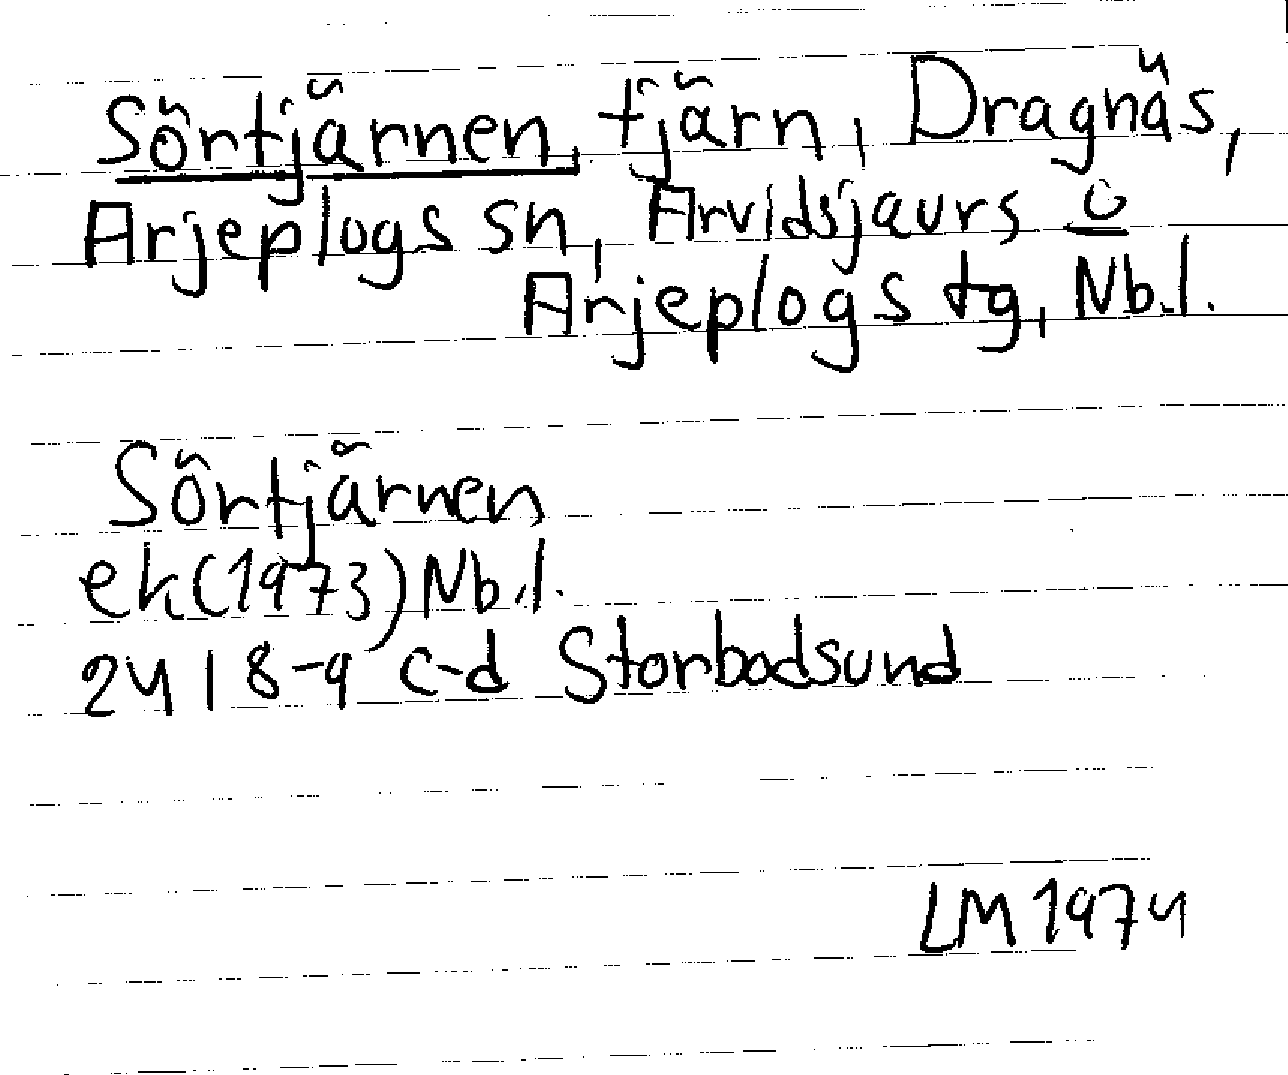 Sörtjärnen, tjärn, Dragnäs,
Arjeplogs sn, Arvidsjaurs o
Arjeplogs tg, Nb.l.
Sörtjärnen
ek(1973) Nb.l.
24 I 8-9 c-d Storbodsund
LM 1974